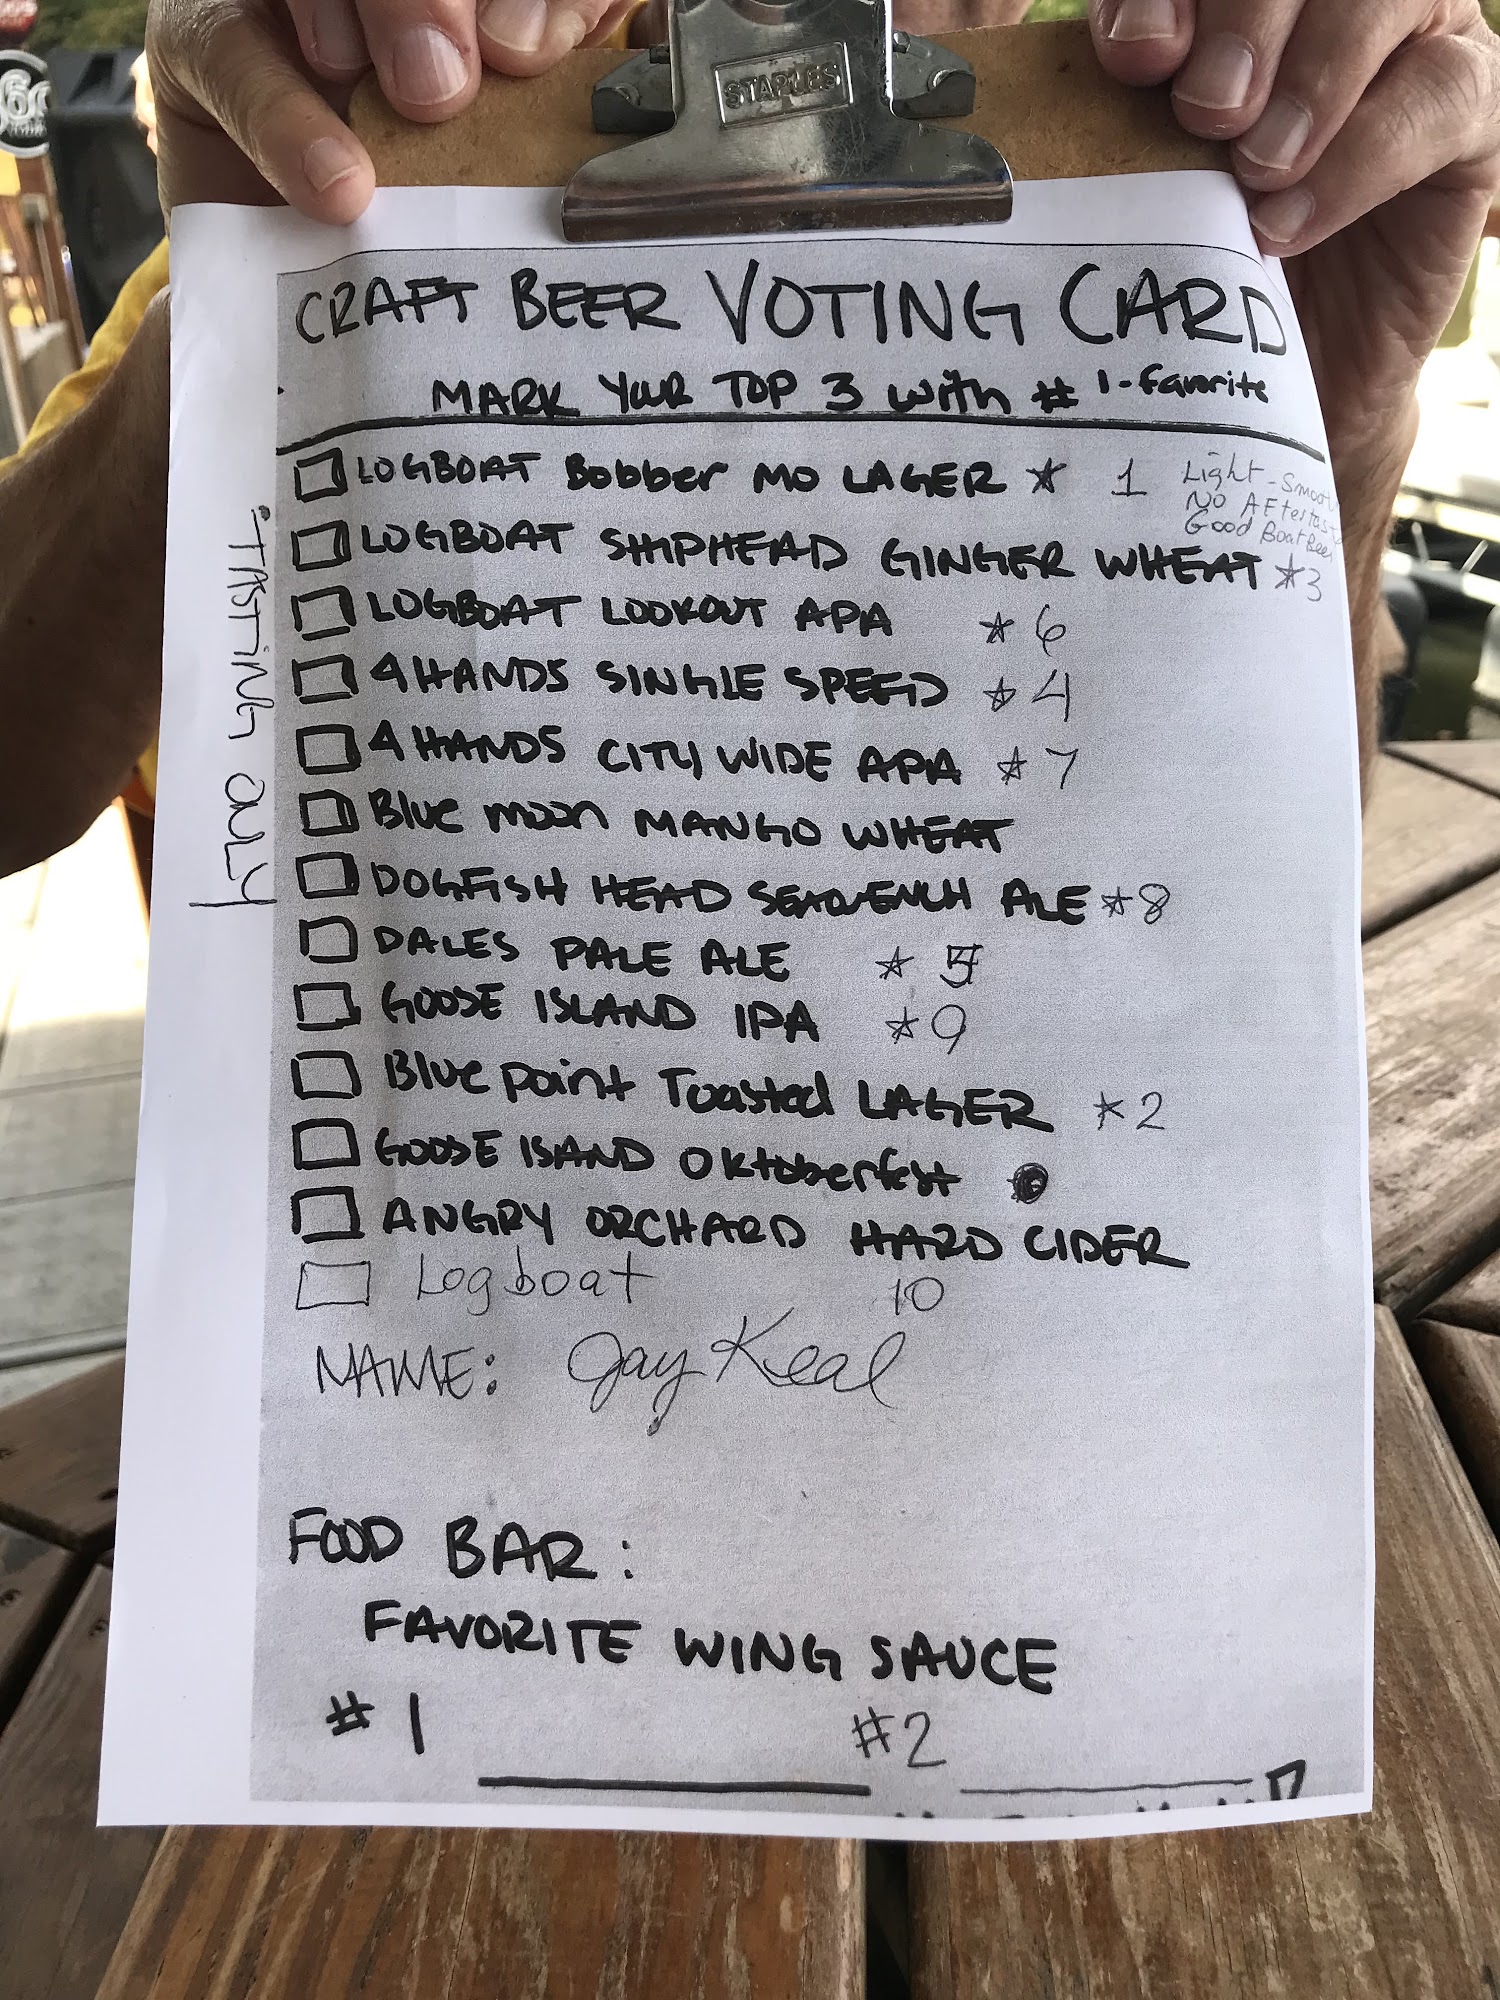 STAPLES
CRAFT BEER VOTING CARD
MARK YOUR TOP 3 with # 1 - favorite
LOGBOAT Bobber MO LAGER ★ 1
Light - Smoot
No AFtertast
Good Boat Beer
LOGBOAT SHIPHEAD GINGER WHEAT ★3
LOGBOAT LOOKOUT APA ★ 6
4 HANDS SINGLE SPEED ★ 4
4 HANDS CITY WIDE APA ★ 7
Blue moon MANGO WHEAT
DOGFISH HEAD SEAQUENCH ALE ★ 8
DALES PALE ALE ★ 5
GOOSE ISLAND IPA ★ 9
Blue point Toasted LAGER ★ 2
GOOSE ISAND Oktoberfest
ANGRY ORCHARD HARD CIDER
Logboat 10
NAME: Jay Keal
FOOD BAR:
FAVORITE WING SAUCE
# 1 #2
TASTING ONLY